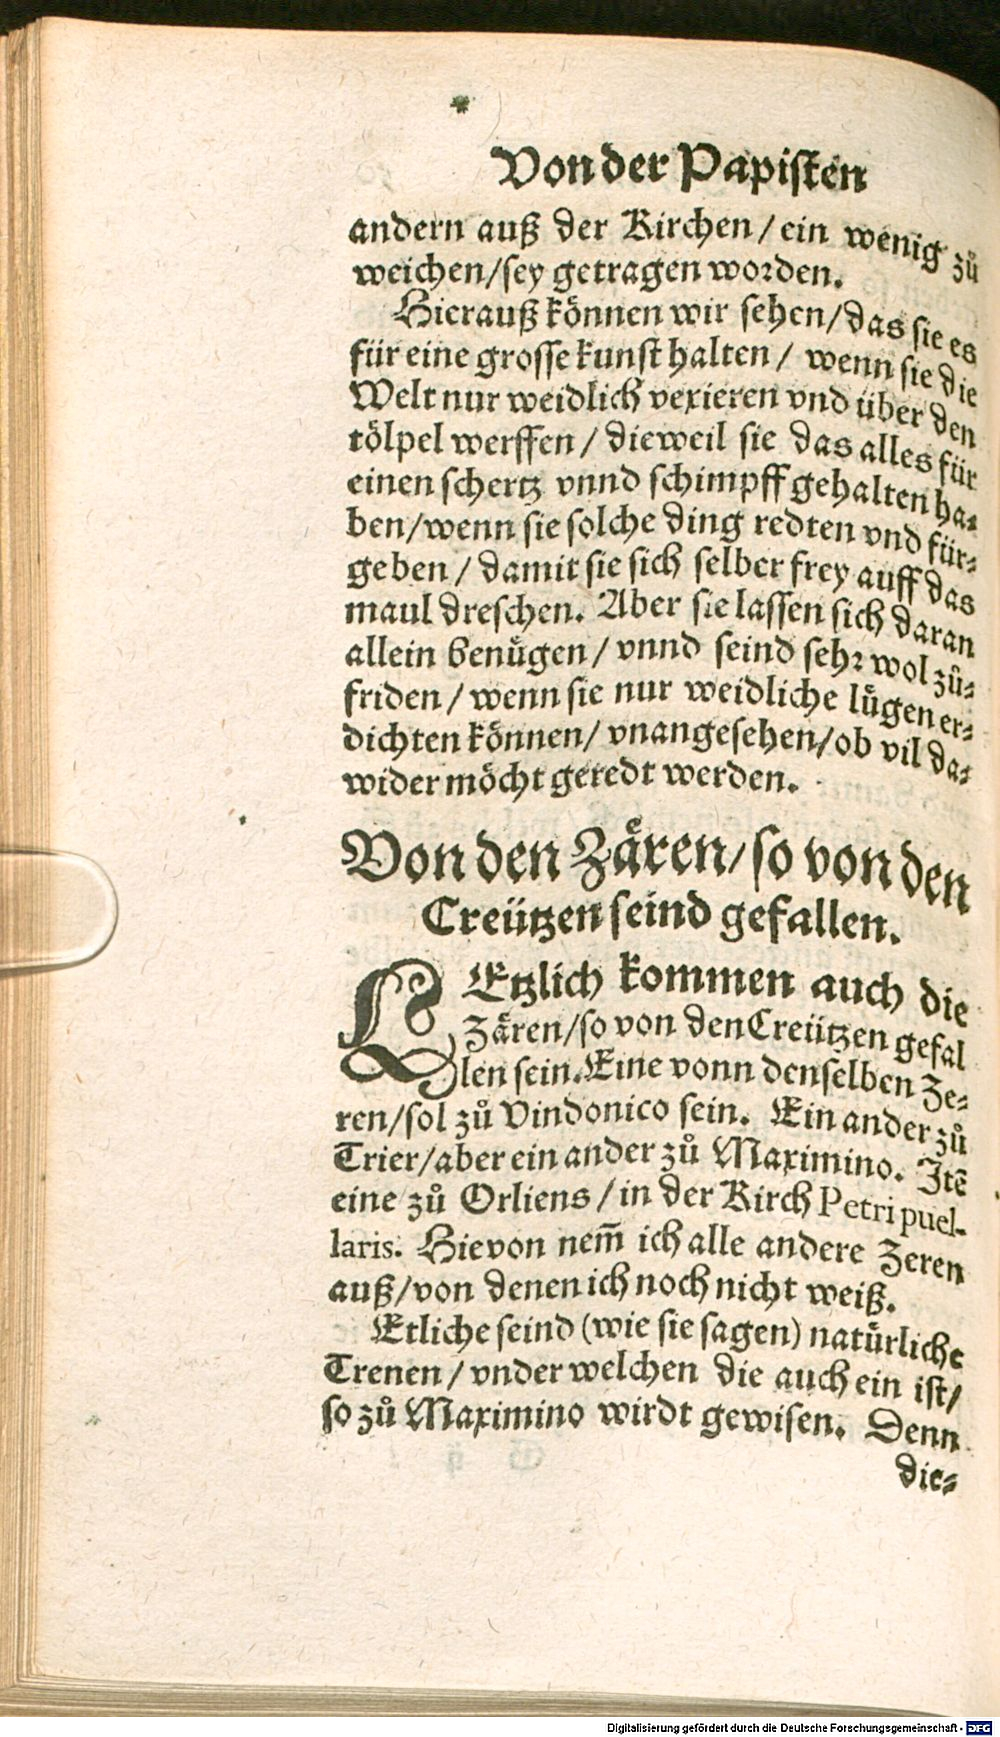 Von der Papisten
andern auß der Kirchen / ein wenig zů
weichen / sey getragen worden.
Hierauß können wir sehen / das sie es
für eine grosse kunst halten / wenn sie die
Welt nur weidlich vexieren vnd über den
tölpel werffen / dieweil sie das alles für
einen schertz vnnd schimpff gehalten ha⸗
ben / wenn sie solche ding redten vnd für⸗
geben / damit sie sich selber frey auff das
maul dreschen. Aber sie lassen sich daran
allein benuͤgen / vnnd seind sehr wol zů⸗
friden / wenn sie nur weidliche luͤgen er⸗
dichten können / vnangesehen / ob vil da⸗
wider möcht geredt werden.
Von den Zaͤren / so von den
Creützen seind gefallen.
LEtzlich kommen auch die
Zaͤren / so von den Creützen gefal
len sein. Eine vonn denselben Ze⸗
ren / sol zů Vindonico sein. Ein ander zů
Trier / aber ein ander zů Maximino. Itē
eine zů Orliens / in der Kirch Petri puel-
laris. Hievon nem̄ ich alle andere Zeren
auß / von denen ich noch nicht weiß.
Etliche seind (wie sie sagen) natürliche
Trenen / vnder welchen die auch ein ist /
so zů Maximino wirdt gewisen. Denn
die⸗
Digitalisierung gefördert durch die Deutsche Forschungsgemeinschaft - DFG